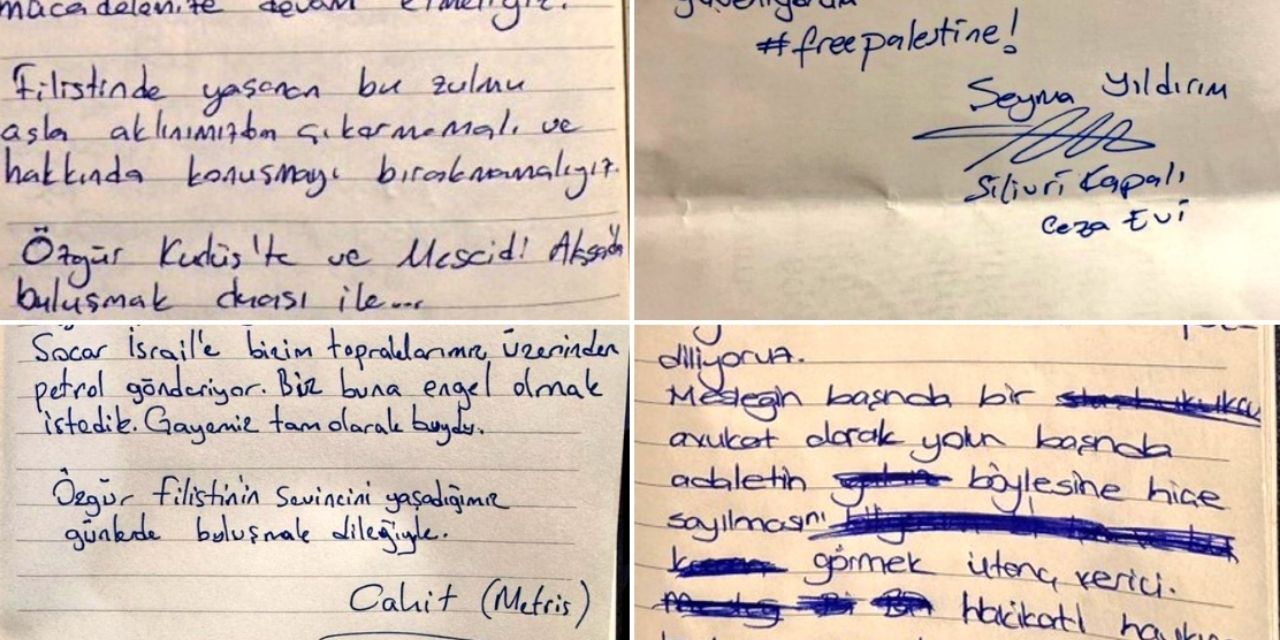 mücadelenize devam etmeliyiz.
Filistinde yaşanan bu zulmu
asla aklınımızdan çıkarmamalı ve
hakkında konuşmayı bırakmamalıyız.
Özgür Kudüs'te ve Mescidi Aksa'da
buluşmak duası ile...
#freepalestine!
Şeyma Yıldırım
Silivri Kapalı
Ceza Evi
Socar İsrail'e bizim topraklarımız üzerinden
petrol gönderiyor. Biz buna engel olmak
istedik. Gayemiz tam olarak buydu.
Özgür filistinin sevincini yaşadığımız
günlerde buluşmak dileğiyle.
Cahit (Metris)
diliyorum.
Mesleğin başında bir
avukat olarak yolun başında
adaletin böylesine hiçe
sayılmasını
görmek utanç verici.
Hakikati